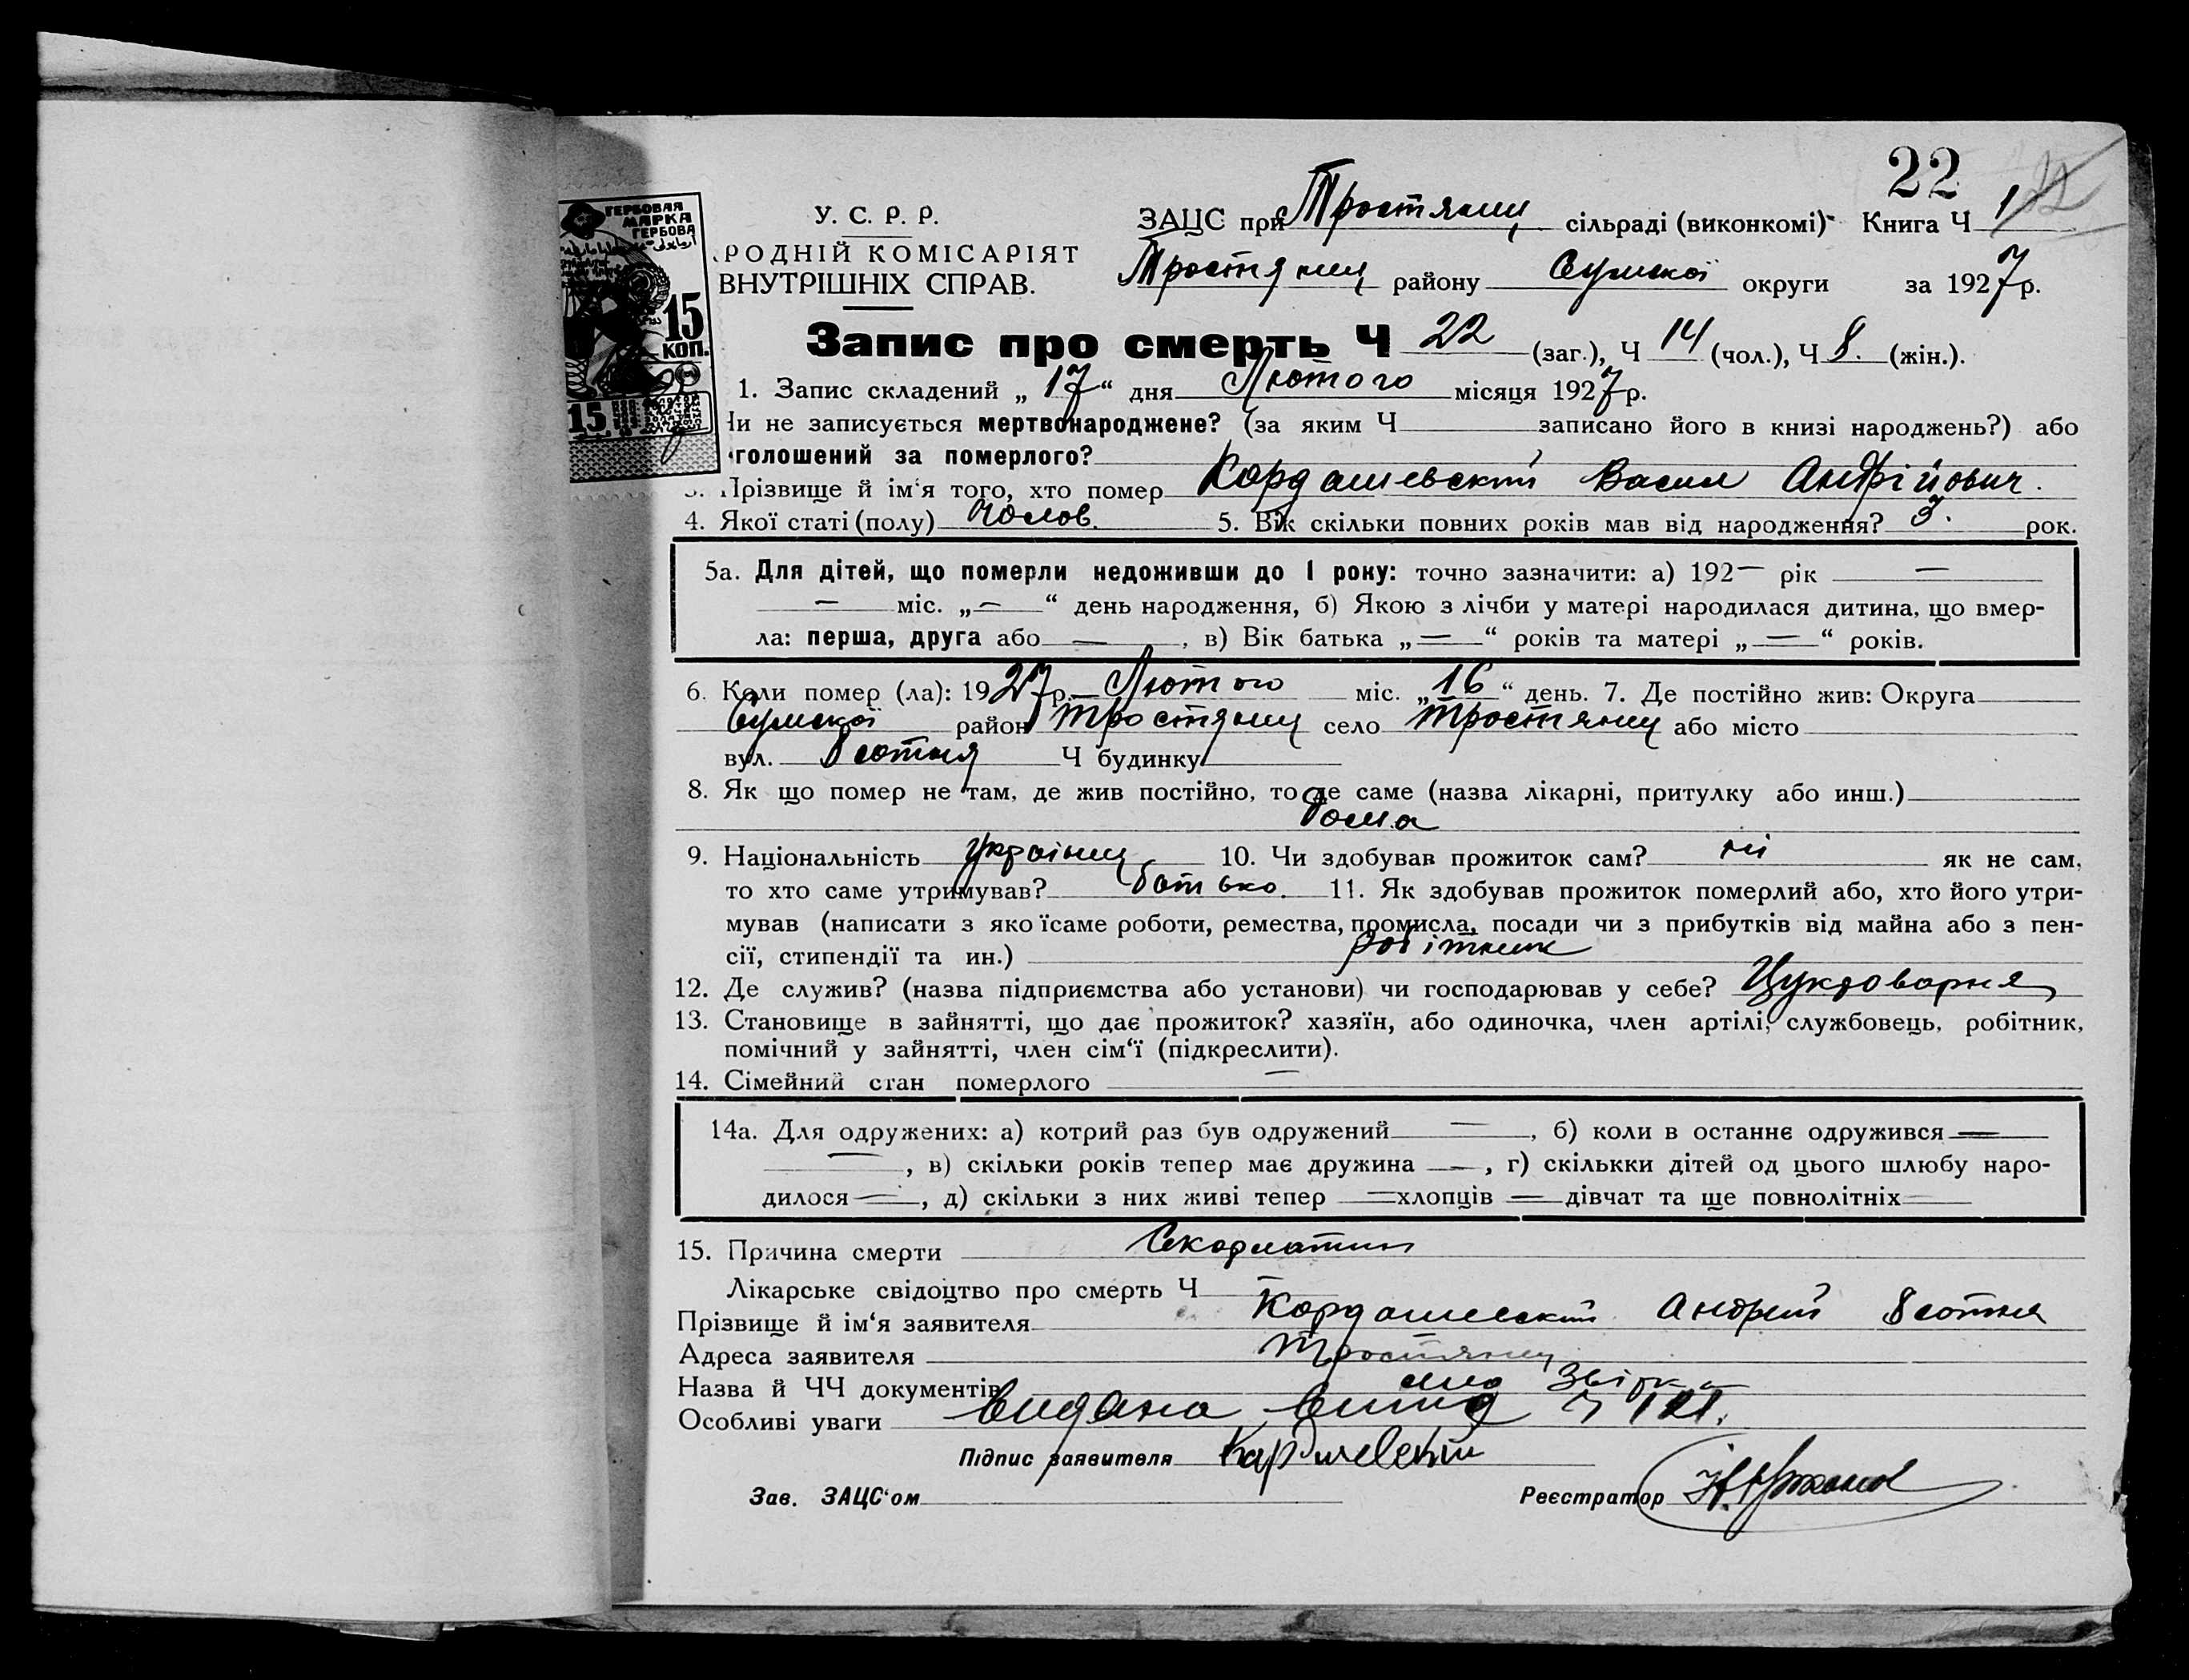 22
У. С. Р. Р.
РОДНІЙ КОМІСАРІЯТ
ВНУТРІШНІХ СПРАВ.
ГЕРБОВАЯ
МАРКА
ГЕРБОВА
15
КОП.
15
ЗАЦС при Тростянец, сільраді (виконкомі) Книга Ч 1
Тростянец району Сумської округи за 1927р.
Запис про смерть Ч 22 (заг.), Ч 14 (чол.), Ч 8. (жін.).
1. Запис складений „ 17 “ дня Лютого місяця 1927р.
и не записується мертвонароджене? (за яким Ч записано його в книзі народжень?) або
голошений за померлого?
3. Прізвище й ім‘я того, хто помер Кордашевский Васил Андрійович.
4. Якої статі (полу) Чолов. 5. Вік скільки повних років мав від народження? 3. рок.
5а. Для дітей, що померли недоживши до 1 року: точно зазначити: а) 192— рік —
— міс. „—“ день народження, б) Якою з лічби у матері народилася дитина, що вмер-
ла: перша, друга або —, в) Вік батька „—“ років та матері „—“ років.
6. Коли помер (ла): 1927р. Лютого міс. „16“ день. 7. Де постійно жив: Округа
Сумської район Тростянец село Тростянец або місто
вул. 8 сотня Ч будинку
8. Як що помер не там, де жив постійно, то де саме (назва лікарні, притулку або инш.)
Дома
9. Національність українец 10. Чи здобував прожиток сам? ні як не сам,
то хто саме утримував? батько. 11. Як здобував прожиток померлий або, хто його утри-
мував (написати з яко їсаме роботи, ремества, промисла, посади чи з прибутків від майна або з пен-
сії, стипендії та ин.) робітник
12. Де служив? (назва підприємства або установи) чи господарював у себе? Цукроварня
13. Становище в зайнятті, що дає прожиток? хазяїн, або одиночка, член артілі, службовець, робітник,
помічний у зайнятті, член сім‘ї (підкреслити).
14. Сімейний стан померлого —
14а. Для одружених: а) котрий раз був одружений —, б) коли в останнє одружився —
—, в) скільки років тепер має дружина —, г) скількки дітей од цього шлюбу наро-
дилося —, д) скільки з них живі тепер — хлопців — дівчат та ще повнолітніх —
15. Причина смерти Скорлатин
Лікарське свідоцтво про смерть Ч —
Прізвище й ім‘я заявителя Кордашевский Андрей 8 сотня
Адреса заявителя Тростянец
Назва й ЧЧ документів
Особливі уваги видана
Підпис заявителя
Зав. ЗАЦС‘ом Реєстратор